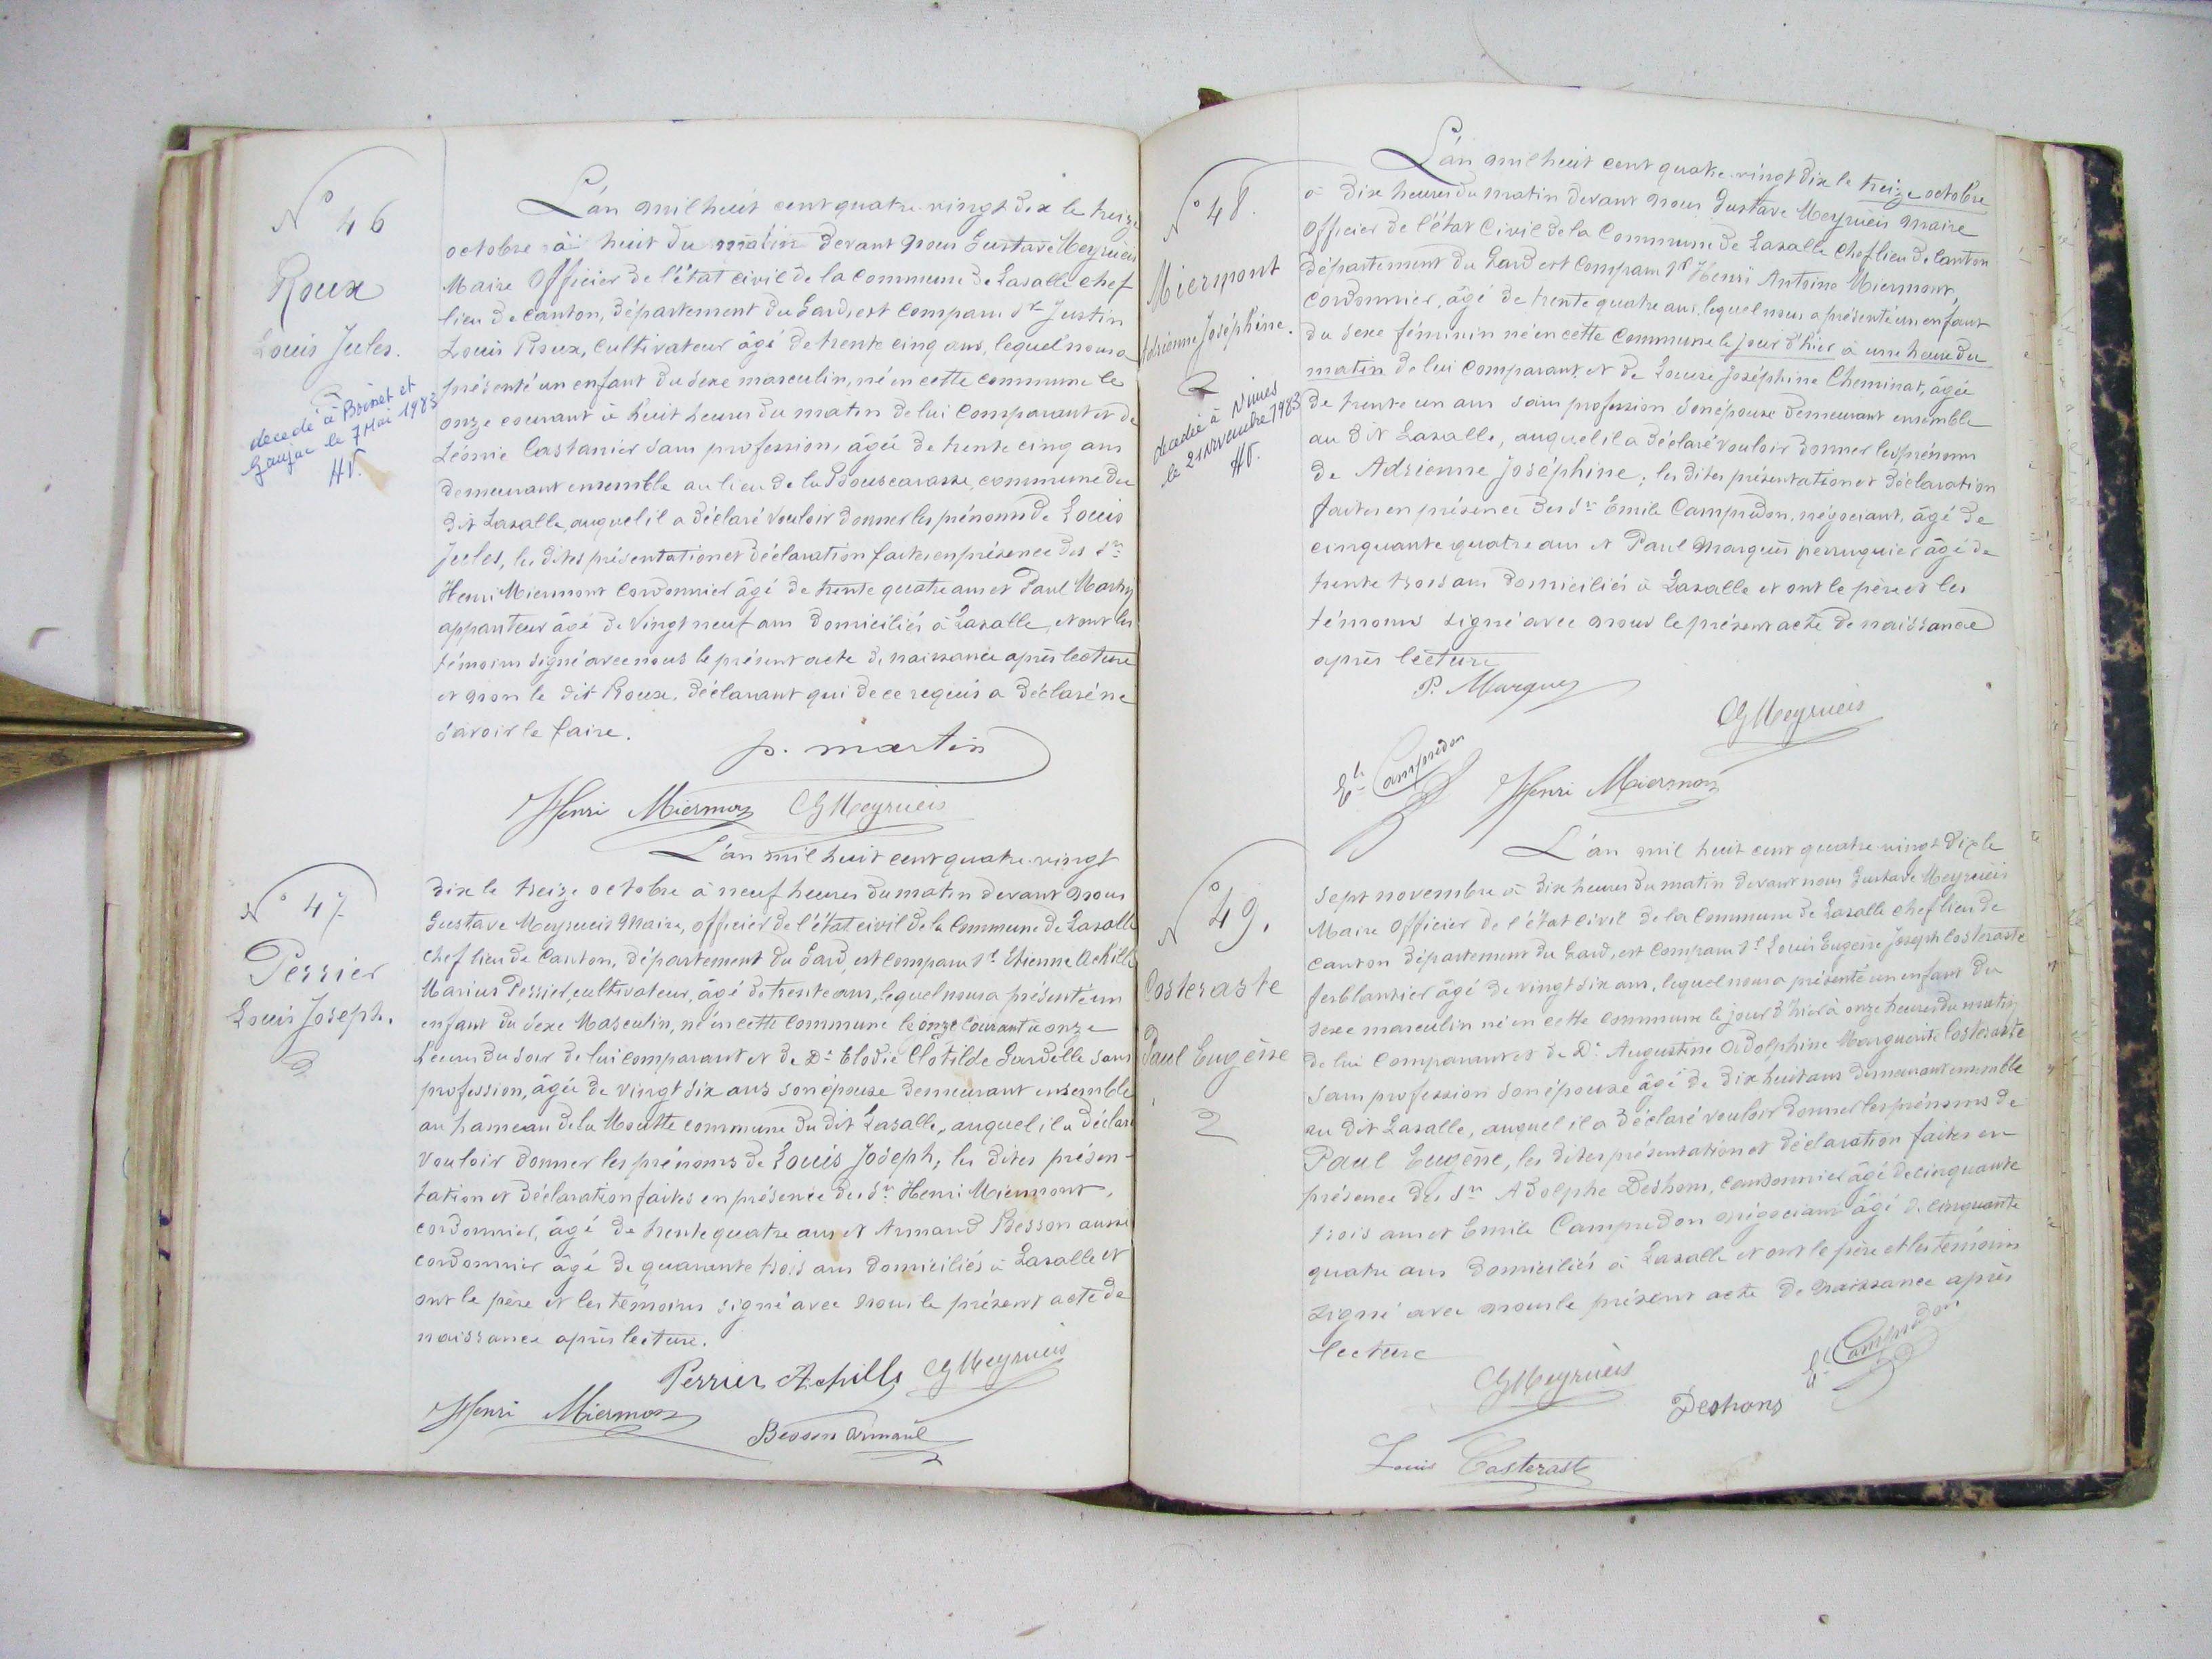 N° 46
Roux
Louis Jules.
décédé à Boisset et
Gaujac le 7 Mai 1983
HV.
L'án mil huit cent quatre-vingt dix le treize
octobre à huit du matin devant nous Gustave Meyrueis
Maire Officier de l'état civil de la commune de Lasalle chef
lieu de canton, département du Gard, est comparu Sr Justin
Louis Roux, Cultivateur âgé de trente cinq ans, lequel nous a
présenté un enfant du sexe masculin, né en cette commune le
onze courant à huit heures du matin de lui comparant et de
Léonie Castanier sans profession, âgée de trente cinq ans
demeurant ensemble au lieu de la Bouscarasse, commune du
dit Lasalle, auquel il a déclaré vouloir donner les prénoms de Louis
Jules, les dites présentation et déclaration faites en présence des Srs
Henri Miermont Cordonnier âgé de trente quatre ans et Paul Martin
appariteur âgé de Vingt neuf ans domiciliés à Lasalle, et ont les
témoins signé avec nous le présent acte de naissance après lecture
et non le dit Roux, déclarant qui de ce requis a déclaré ne
savoir le faire.
p. martin
Henri Miermon GMeyrueis
N° 47
Perrier
Louis Joseph.
L'an mil huit cent quatre-vingt
dix le treize octobre à neuf heures du matin devant nous
Gustave Meyrueis Maire, officier de l'état civil de la Commune de Lasalle
chef lieu de Canton, département du Gard, est comparu Sr Etienne Achille
Marius Perrier, cultivateur, âgé de trente ans, lequel nous a présenté un
enfant du sexe Masculin, né en cette commune le onze courant à onze
heures du soir de lui comparant et de De Elodie Clotilde Gardelle sans
profession, âgée de vingt six ans son épouse demeurant ensemble
au hameau de la Moutte commune du dit Lasalle, auquel il a déclaré
vouloir donner les prénoms de Louis Joseph, les dites présen-
tation et déclaration faites en présence des Srs Henri Miermont,
cordonnier, âgé de trente quatre ans et Armand Besson aussi
cordonnier âgé de quarante trois ans domiciliés à Lasalle et
ont le père et les témoins signé avec nous le présent acte de
naissance après lecture.
Perrier Achille GMeyrueis
Henri Miermon
Besson Armand
N° 48.
Miermont
Adrienne Joséphine.
décédée à Nîmes
le 21 Novembre 1983
HV.
L'án mil huit cent quatre-vingt dix le treize octobre
à dix heures du matin devant nous Gustave Meyrueis Maire
Officier de l'état Civil de la Commune de Lasalle Chef lieu de Canton
département du Gard est comparu Sr Henri Antoine Miermont,
Cordonnier, âgé de trente quatre ans, lequel nous a présenté un enfant
du sexe féminin né en cette commune le jour d'hier à une heure du
matin de lui comparant et de Louise Joséphine Cheminat, âgée
de trente un ans sans profession son épouse demeurant ensemble
au dit Lasalle, auquel il a déclaré vouloir donner les prénoms
de Adrienne joséphine; les dites présentation et déclaration
faites en présence des Srs Emile Campredon, négociant, âgé de
cinquante quatre ans et Paul Marquès perruquier âgé de
trente trois ans domiciliés à Lasalle et ont le père et les
témoins signé avec nous le présent acte de naissance
après lecture
P. Marques
GMeyrueis
Ele Campredon
Henri Miermon
N° 49.
Costeraste
Paul Eugène
L'án mil huit cent quatre-vingt dix le
sept novembre à dix heures du matin devant nous Gustave Meyrueis
Maire Officier de l'état civil de la Commune de Lasalle chef lieu de
canton département du Gard, est comparu Sr Louis Eugène Joseph Costeraste
ferblantier âgé de vingt six ans, lequel nous a présenté un enfant du
sexe masculin né en cette commune le jour d'hier à onze heures du matin
de lui comparant et de De Augustine Adolphine Marguerite Costeraste
sans profession son épouse âgé de dix huit ans demeurant ensemble
au dit Lasalle, auquel il a déclaré vouloir donner les prénoms de
Paul Eugène, les dites présentation et déclaration faites en
présence des Srs Adolphe Deshons, cantonnier âgé de cinquante
trois ans et Emile Campredon négociant âgé de cinquante
quatre ans domiciliés à Lasalle et ont le père et les témoins
signé avec nous le présent acte de naissance après
lecture
GMeyrueis
Deshons
Ele Campredon
Louis Costeraste